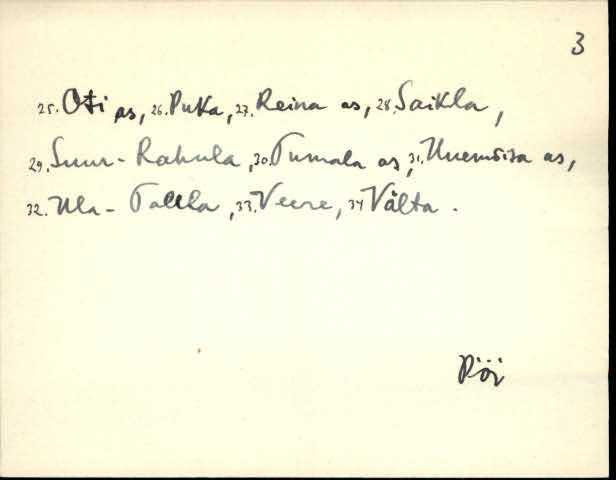 3
25. Oti as, 26. Puka, 27. Reina as, 28. Saikla,
29. Suur-Rahula, 30. Tumala as, 31. Uuemõisa as,
32. Ula-Pahla, 33. Veere, 34 Välta.
Pöi